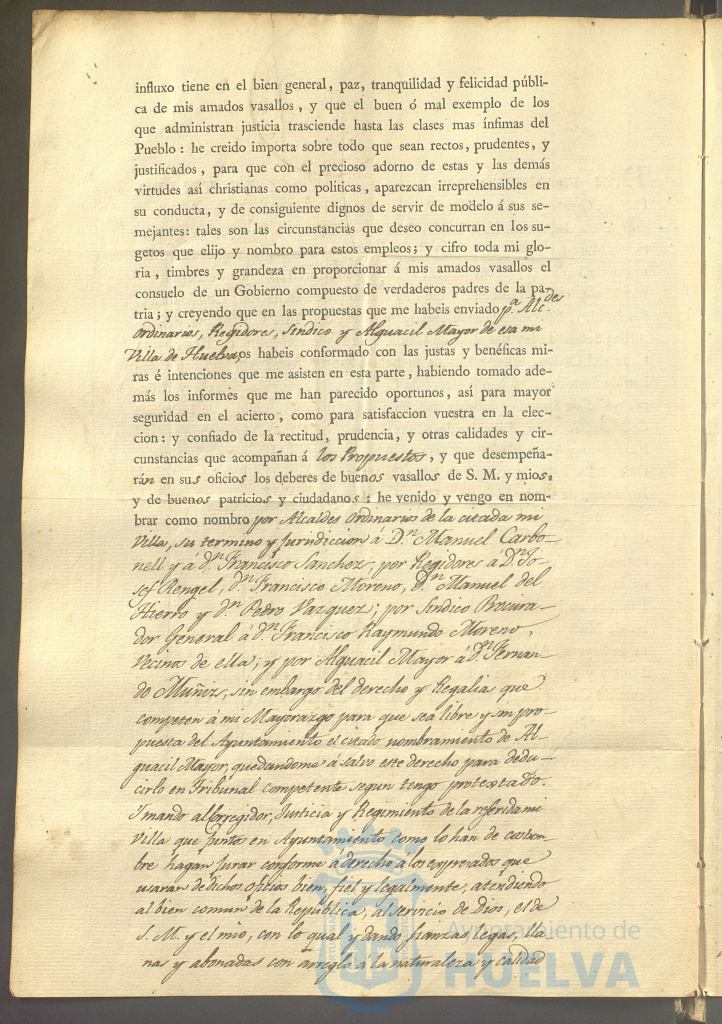 influxo tiene en el bien general, paz, tranquilidad y felicidad públi-
ca de mis amados vasallos, y que el buen ó mal exemplo de los
que administran justicia trasciende hasta las clases mas ínfimas del
Pueblo: he creido importa sobre todo que sean rectos, prudentes, y
justificados, para que con el precioso adorno de estas y las demás
virtudes así christianas como políticas, aparezcan irreprehensibles en
su conducta, y de consiguiente dignos de servir de modelo á sus se-
mejantes: tales son las circunstancias que deseo concurran en los su-
getos que elijo y nombro para estos empleos; y cifro toda mi glo-
ria, timbres y grandeza en proporcionar á mis amados vasallos el
consuelo de un Gobierno compuesto de verdaderos padres de la pa-
tria; y creyendo que en las propuestas que me habeis enviado pª Alc.des
Ordinarios, Regidores, Sindico y Alguacil Mayor de esa mi
Villa de Huelva, os habeis conformado con las justas y benéficas mi-
ras é intenciones que me asisten en esta parte, habiendo tomado ade-
más los informes que me han parecido oportunos, así para mayor
seguridad en el acierto, como para satisfaccion vuestra en la elec-
cion: y confiado de la rectitud, prudencia, y otras calidades y cir-
cunstancias que acompañan á los Propuestos, y que desempeña-
rán en sus oficios los deberes de buenos vasallos de S. M. y mios,
y de buenos patricios y ciudadanos: he venido y vengo en nom-
brar como nombro por Alcaldes Ordinarios de la citada mi
Villa, su termino y jurisdiccion á D.n Manuel Carbo-
nell y á d.n Francisco Sanchez, por Regidores á D.n Jo-
sef Rengel, d.n Francisco Moreno, D.n Manuel del
Hierro y d.n Pedro Vazquez; por Sindico Procura-
dor General á d.n Francisco Raymundo Moreno,
Vecinos de ella; y por Alguacil Mayor á D.n Fernan-
do Muñiz, sin embargo del derecho y Regalia que
competen á mi Mayorazgo para que sea libre y sin pro-
puesta del Ayuntamiento el citado nombramiento de Al-
guacil Mayor, quedandome á salvo este derecho para dedu-
cirlo en Tribunal competente segun tengo protextado.
Y mando al Corregidor, Justicia y Regimiento de la referida mi
Villa que juntos en Ayuntamiento como lo han de costum-
bre hagan jurar conforme á derecho á los expresados que
usaran de dichos oficios bien, fiel y legalmente, atendiendo
al bien comun de la Republica, al servicio de Dios, el de
S. M. y el mio, con lo qual y dando fianzas legas, lla-
nas y abonadas con arreglo á la naturaleza y calidad
Ayuntamiento de
HUELVA